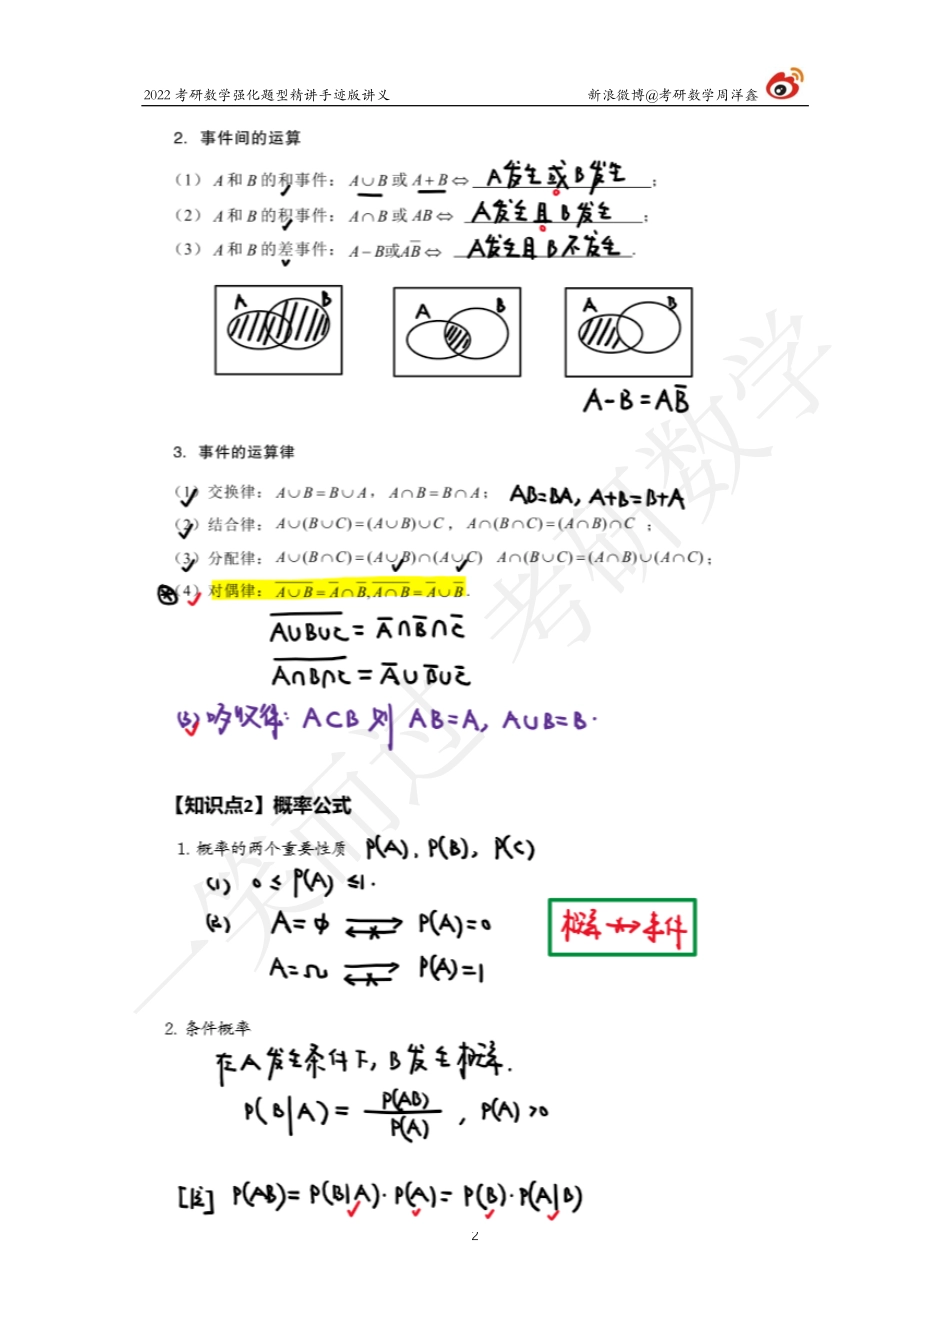 2022 考研数学强化题型精讲手迹版讲义 新浪微博@考研数学周洋鑫
2. 事件间的运算
(1) A 和 B 的和事件: A∪B 或 A+B⇔ A发生或B发生 ;
(2) A 和 B 的积事件: A∩B 或 AB⇔ A发生且B发生 ;
(3) A 和 B 的差事件: A−B或AB̅⇔ A发生且B不发生 .
A B
A B
A B
A-B=AB̅
3. 事件的运算律
(1) 交换律: A∪B=B∪A, A∩B=B∩A; AB=BA, A+B=B+A
(2) 结合律: A∪(B∪C)=(A∪B)∪C, A∩(B∩C)=(A∩B)∩C ;
(3) 分配律: A∪(B∩C)=(A∪B)∩(A∪C) A∩(B∪C)=(A∩B)∪(A∩C);
(4) 对偶律: \overline{A∪B}=A̅∩B̅, \overline{A∩B}=A̅∪B̅.
\overline{A∪B∪C}=A̅∩B̅∩C̅
\overline{A∩B∩C}=A̅∪B̅∪C̅
(5) 吸收律: A⊂B 则 AB=A, A∪B=B.
【知识点2】概率公式
1. 概率的两个重要性质 P(A), P(B), P(C)
(1) 0≤P(A)≤1.
(2) A=φ ⇄ P(A)=0
概率↛条件
A=Ω ⇄ P(A)=1
2. 条件概率
在A发生条件下, B发生概率.
P(B|A)= P(AB)/P(A), P(A)>0
[注] P(AB)=P(B|A)·P(A)=P(B)·P(A|B)
2
一笑而过 考研数学